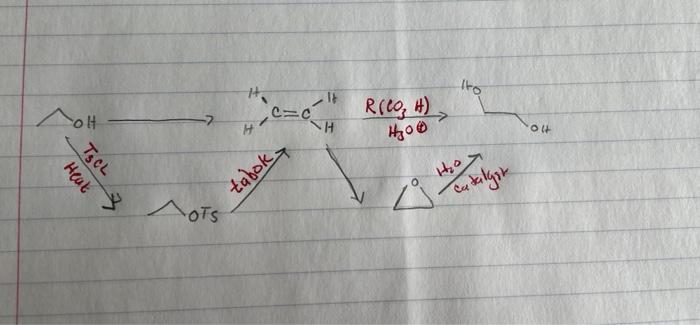 HO
H H
OH C=C R(CO3 H)
H H H3O⊕ OH
TsCl
Heat
OTs
tabok
O
H2O
catalyst